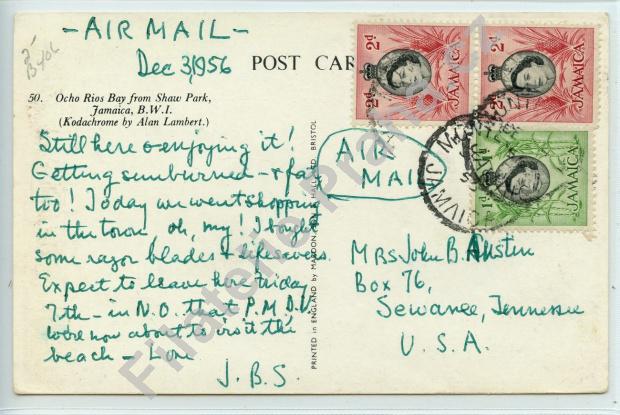 - AIR MAIL -
Dec 3/1956
POST CAR
50. Ocho Rios Bay from Shaw Park,
Jamaica, B.W.I.
(Kodachrome by Alan Lambert.)
Still here & enjoying it!
Getting sunburned - & fat
too! Today we went shopping
in the town, oh, my! I bought
some razor blades & lifesavers.
Expect to leave here Friday
7th - in N.O. that P.M.
We're now about to visit the
beach - Love
J.B.S.
AIR
MAIL
Mrs John B. Austin
Box 76,
Sewanee, Tennessee
U.S.A.
2d 2d JAMAICA
2d JAMAICA
1d JAMAICA
PRINTED IN ENGLAND BY BRISTOL
Filatelie Praha